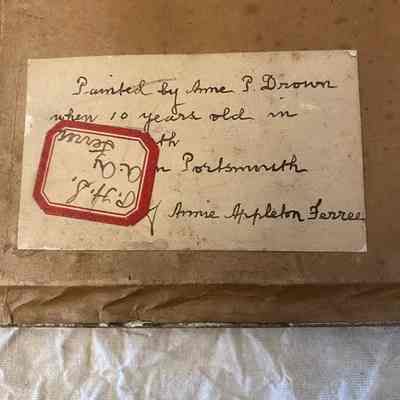 Painted by Anne P. Drown
when 10 years old in
th
n Portsmouth
Annie Appleton Ferree
P.H.S.
A. A.
Ferree